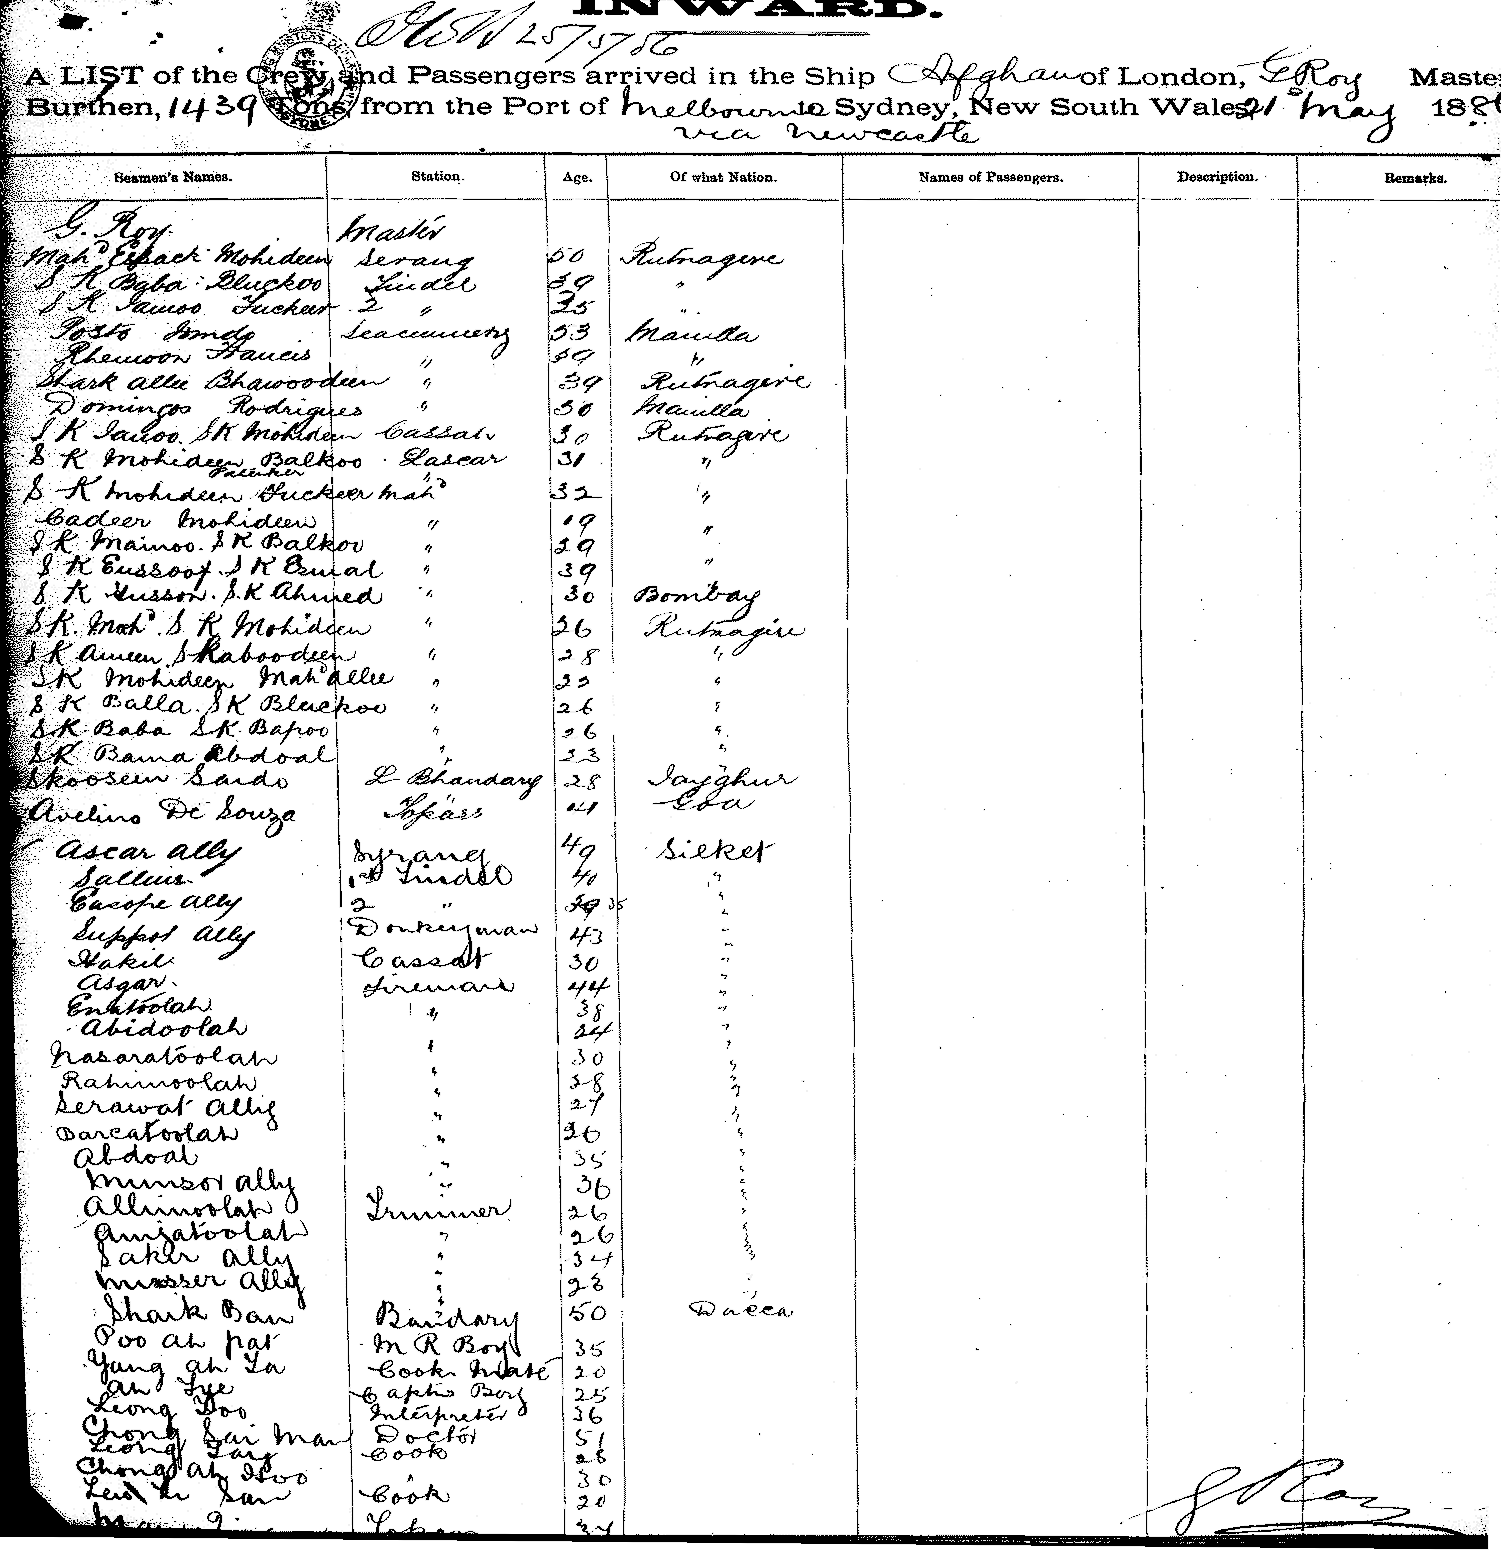 INWARD.
25/5/86
A LIST of the Crew and Passengers arrived in the Ship Afghan of London, G Roy Maste
Burthen, 1439 Tons, from the Port of Melbourne to Sydney, New South Wales, 21 May 188
via Newcastle
Seamen's Names. Station. Age. Of what Nation. Names of Passengers. Description. Remarks.
G. Roy. Master
Mahd Mohideen Serang 50 Rutnagire
S K Baba Bluckoo Tindel 39 "
S K Tuckeer 2 " 35 "
Seacunney 53 Manilla
Francis " 39 "
Shark allee Bhawoodeen " 39 Rutnagire
Domingos Rodrigues " 30 Manilla
S K SK Mohideen Cassab 30 Rutnagire
S K Mohideen Balkoo Lascar 31 "
S K Mohideen Tuckeer Mahd " 32 "
Cadeer Mohideen " 19 "
S K Mainoo. S K Balkoo " 29 "
S K Eussoof. S K Esmal " 39 "
S K Husson. S.K Ahmed " 30 Bombay
S K. Mahd. S K Mohideen " 26 Rutnagire
S K Ameen. " 28 "
SK Mohideen Mahd allee " "
S K Balla. S K Bluckoo " 26 "
S K Baba S K Bapoo " 26 "
S K Bama Abdoal " 33 "
Skooseen Saido L Bhandary 28 Jayghur
Avelino De Souza Topass 41 Goa
Ascar ally Syrang 49 Silket
1st Tindel 40 "
Easope ally 2 " 29 35 "
Suppot ally Donkeyman 43 "
Hakil Cassab 30 "
Asgar. Fireman 44 "
Enatoolah " 38 "
Abidoolah 24 "
Nasaratoolah " 30 "
Rahimoolah " 38 "
Serawat Ally " 27 "
Barcatoolah " 26 "
Abdoal " 35 "
Munsor ally " 36 "
Allimoolah Trimmer 26 "
Amjatoolah " 26 "
Saker ally " 34 "
Musser Ally " 28 "
Shaik Ban Bandary 50 Dacca
Poo ah pat M R Boy 35
Yung ah La Cooks Mate 20
Ah Lye Capts Boy 25
Leong Interpreter 36
Chong Sai Man Doctor 51
Leong Cook 28
Chong ah " 30
San Cook 20
G Roy